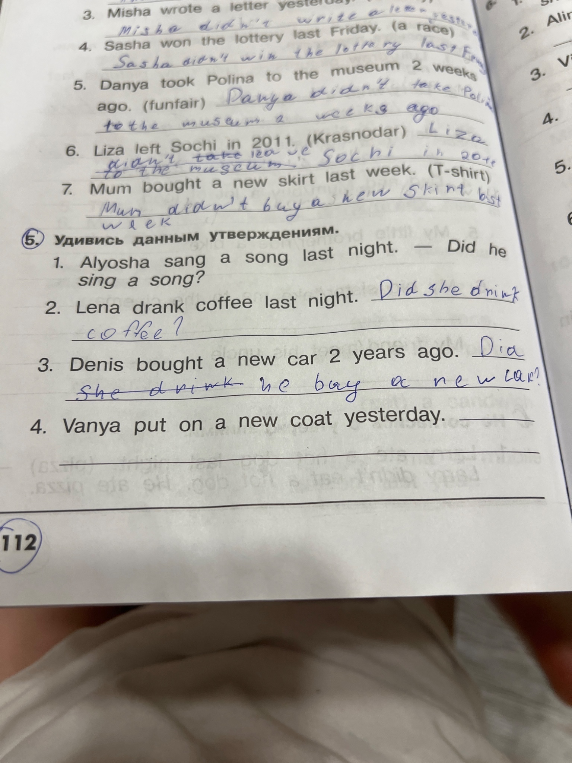 3. Misha wrote a letter yesterday.
Misha didn't write a
4. Sasha won the lottery last Friday. (a race)
Sasha didn't win the lottery last
5. Danya took Polina to the museum 2 weeks
ago. (funfair) Danya didn't take
to the museum 2 weeks ago
6. Liza left Sochi in 2011. (Krasnodar) Liza
didn't take leave Sochi in
to the museum.
7. Mum bought a new skirt last week. (T-shirt)
Mum didn't buy a new skirt
week
5. Удивись данным утверждениям.
1. Alyosha sang a song last night. — Did he
sing a song?
2. Lena drank coffee last night. Did she drink
coffee?
3. Denis bought a new car 2 years ago. Did
she drink he buy a new car?
4. Vanya put on a new coat yesterday.
112
2. Alin
3. V
4.
5.